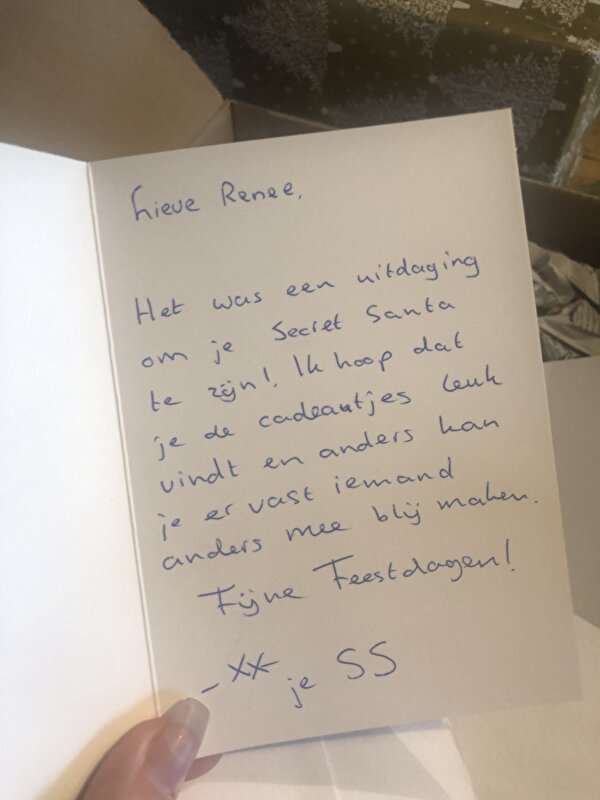 Lieve Renee,
Het was een uitdaging
om je Secret Santa
te zijn! Ik hoop dat
je de cadeautjes leuk
vindt en anders kan
je er vast iemand
anders mee blij maken.
Fijne Feestdagen!
- XX- je SS